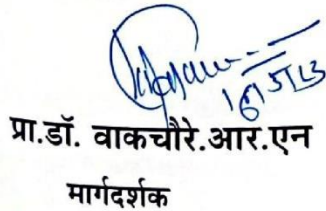 प्रा.डॉ. वाकचौरे.आर.एन
मार्गदर्शक